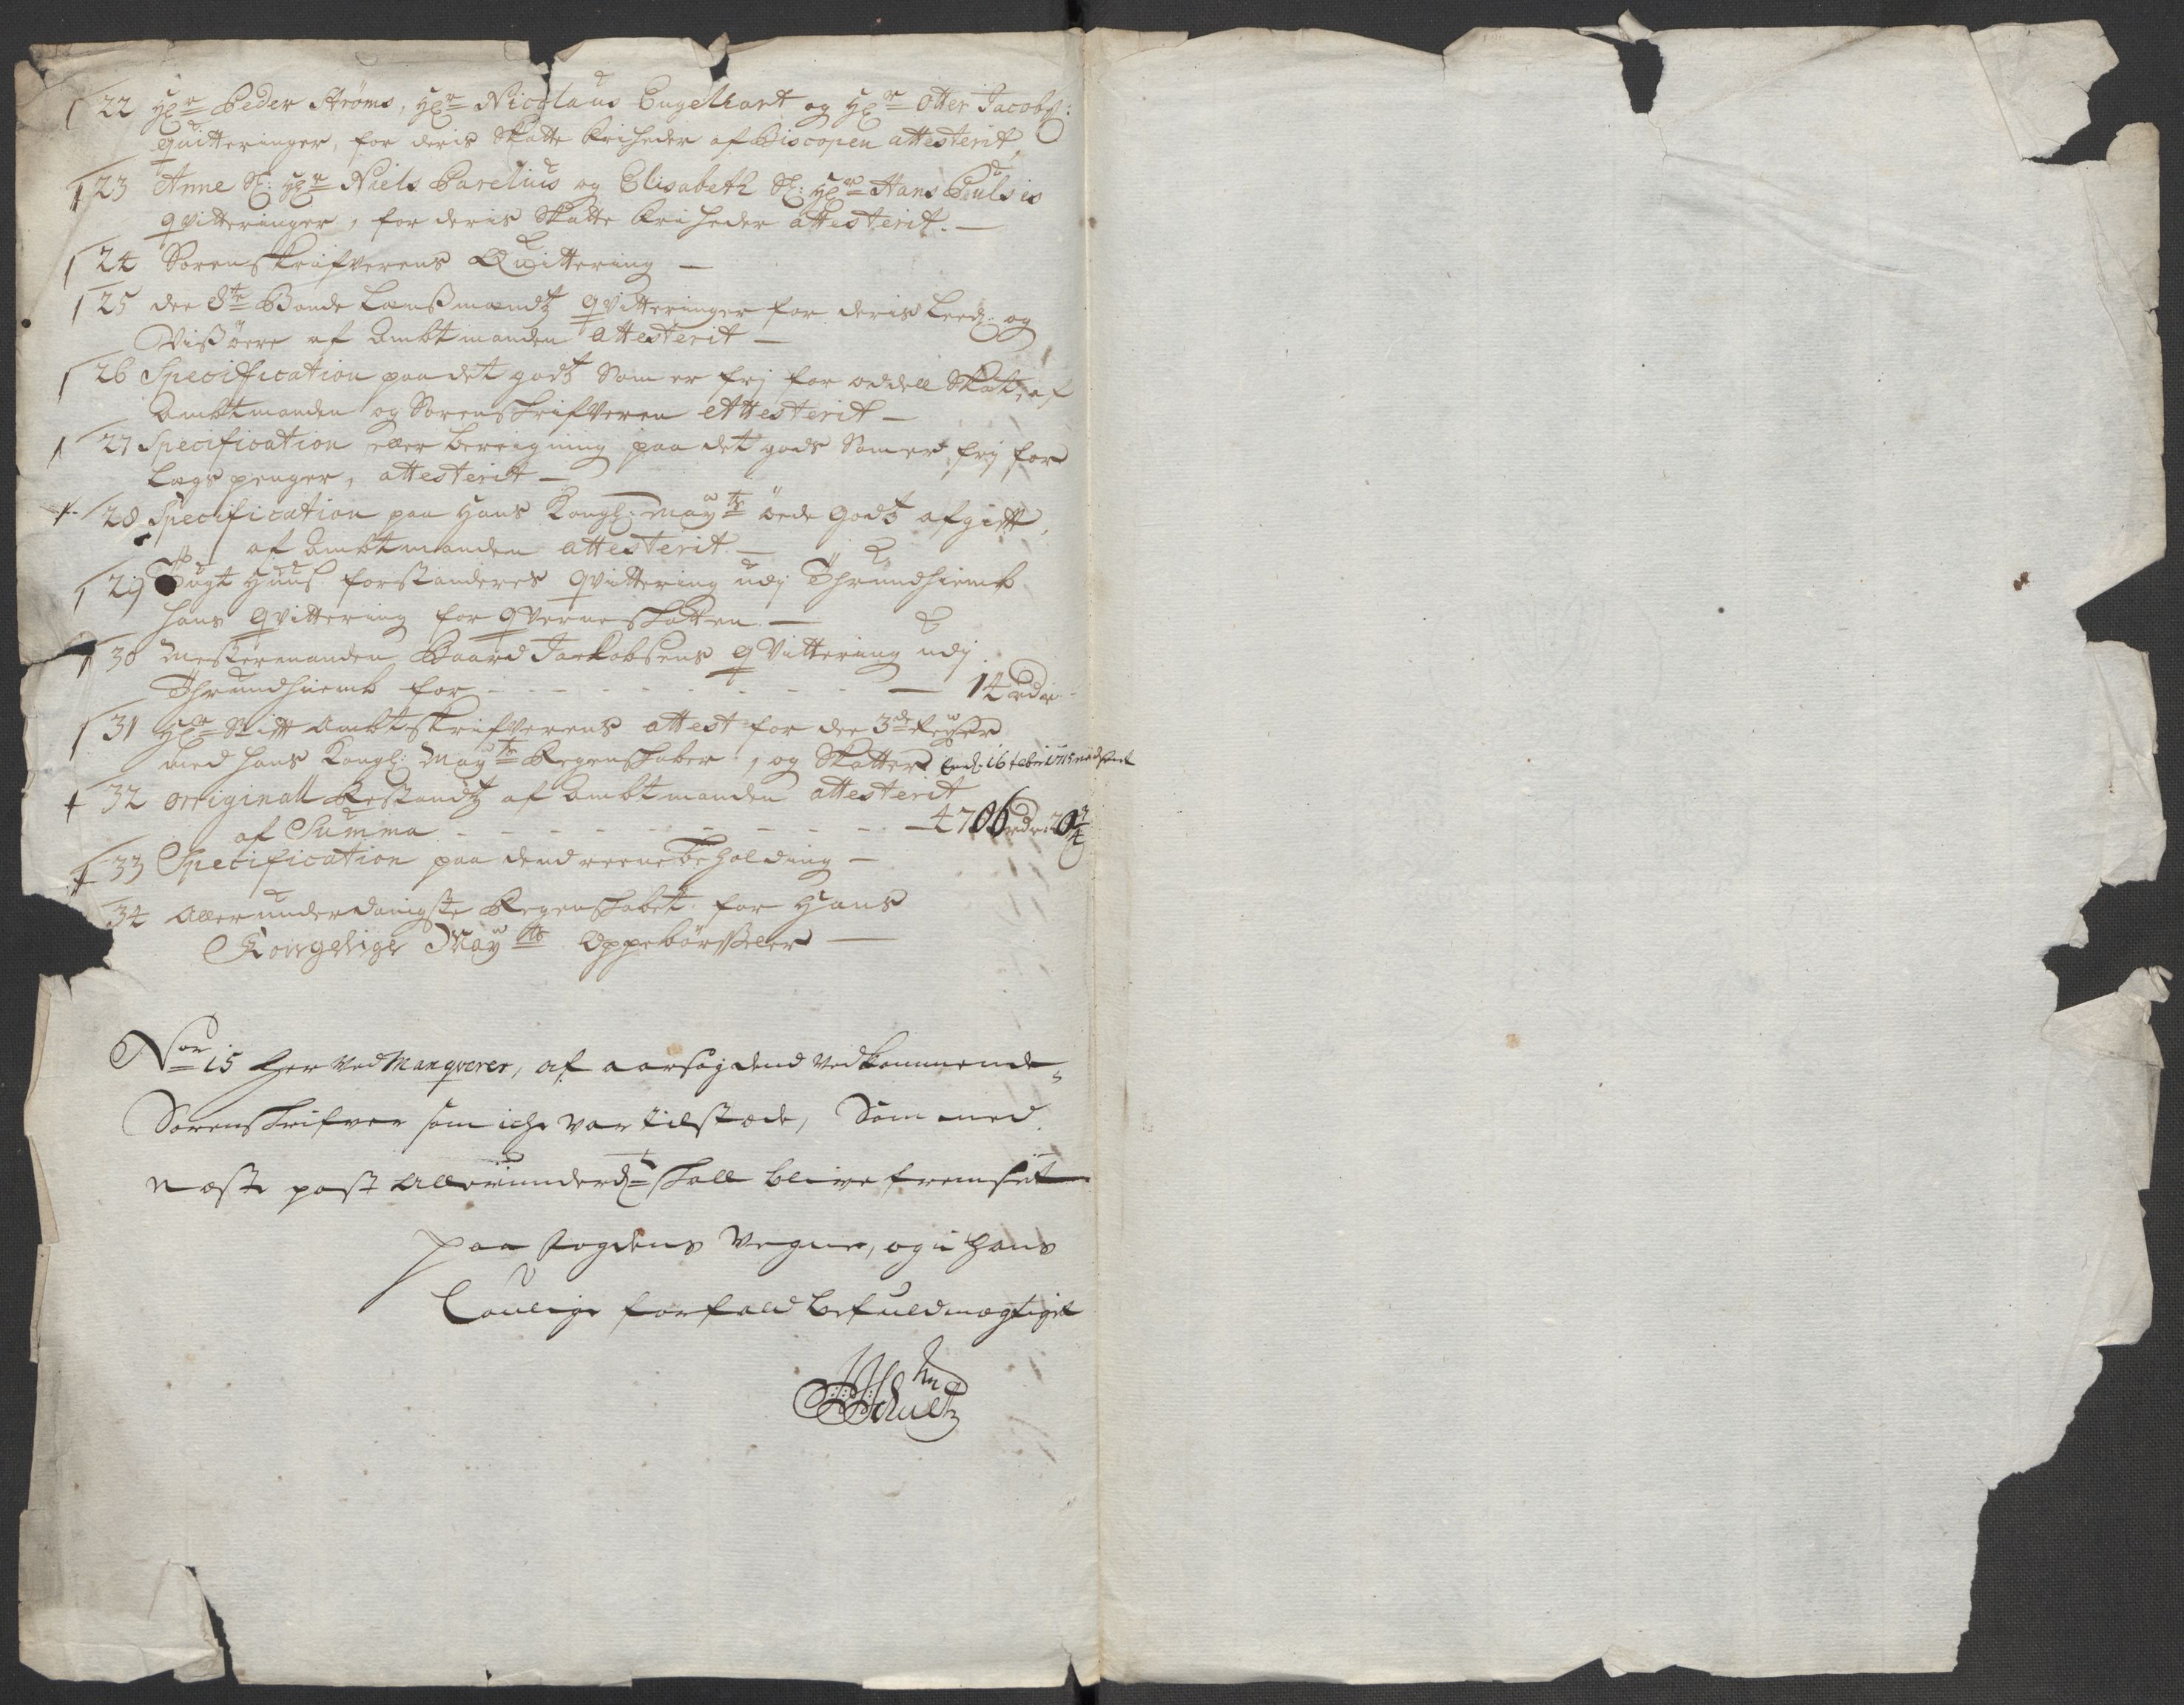 22 Hr Peder Ströms, Hr Nicolaus Engelhart og Hr Otter Jacobs:
quitteringer, for deris Skatte friheder af Biscopen attesterit,
23 Anne Sl: Hr Niels Parelius og Elisabeth Sl: Hr Hans
qvitteringer, for deris Skatte friheder attesterit. —
24 Sorenskrifverens Quittering —
25 de 8te Bonde Lensmændz qvitteringer for deris Leed: og
Visöere af Ambtmanden attesterit —
26 Specification paa det godz Som er frj for oddell Skatt, af
Ambtmanden og Sorenskrifveren Attesterit —
27 Specification over bereigning paa det gods Som er frj for
Lægs penger, attesterit —
28 Specification paa Hans Kongl: Mayts öede Godz afgifft,
af Ambtmanden attesterit —
29 Tugt Huus forstanderes qvittering udj Thrundhiemb
hans qvittering for qverneskatten —
30 Mestermanden Baard Jackobsens qvittering udj
Thrundhiemb for — 14 rdr
31 Hr Stifft Ambtskrifverens attest for de 3de Reyser
med hans Kongl: Mayts Regenskaber, og Skatter 16 febr: 1715
32 original Restandz af Ambtmanden attesterit
af Summa — 4706 rdr
33 Specification paa dend reene beholding —
34 Allerunderdanigste Regenskabet for Hans
Kongelige Mayts Oppebörseler —
Nor 15 her ved Manqverer, af aarsag dend vedkommende
Sorenskrifver som iche var tilstæde, Som med
næste post allerunderdt skall blive fremsat
paa fogdens vegne, og i hans
Lovlige forfald befuldmægtiget
Schultz